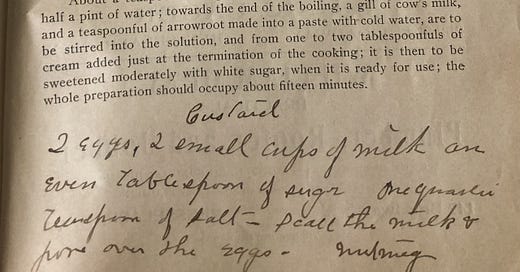 About a
half a pint of water; towards the end of the boiling, a gill of cow's milk,
and a teaspoonful of arrowroot made into a paste with cold water, are to
be stirred into the solution, and from one to two tablespoonfuls of
cream added just at the termination of the cooking; it is then to be
sweetened moderately with white sugar, when it is ready for use; the
whole preparation should occupy about fifteen minutes.
Custard
2 eggs, 2 small cups of milk an
even Tablespoon of sugr One quarter
Teaspoon of salt – scall the milk &
pore over the eggs – nutmeg